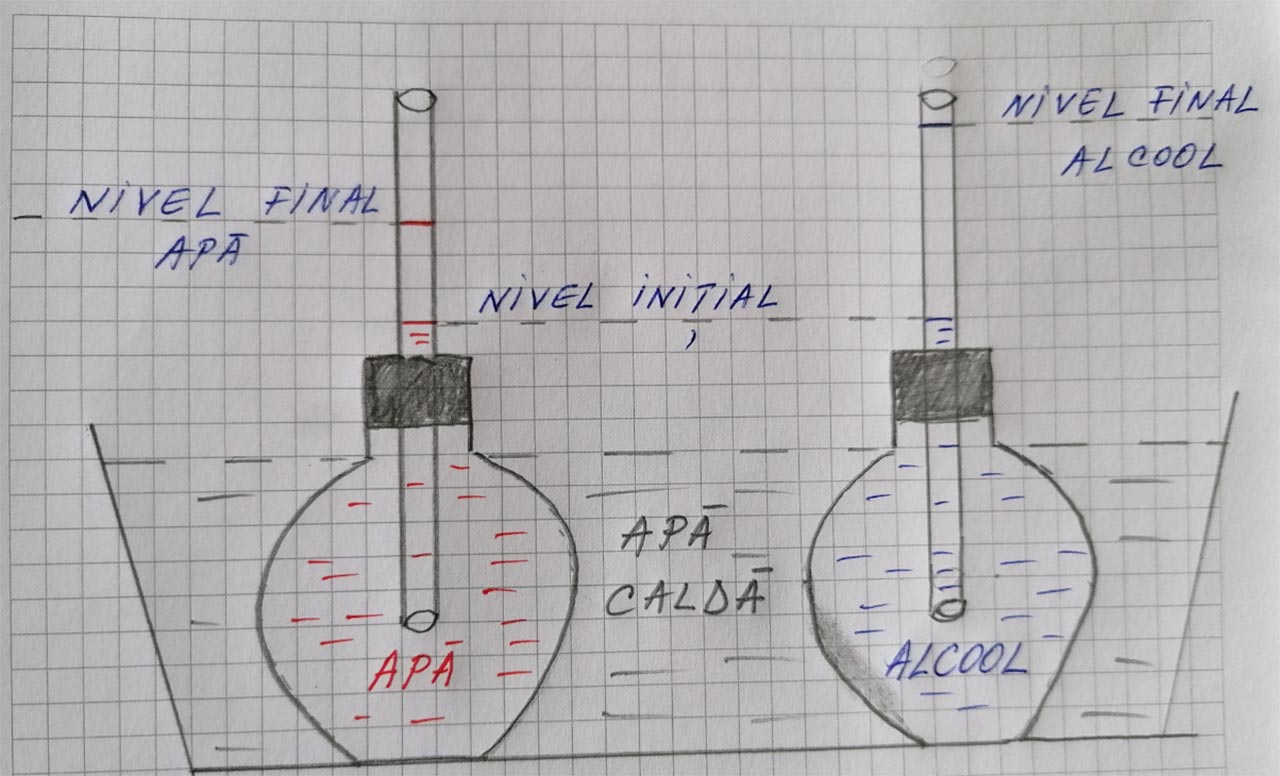 NIVEL FINAL
ALCOOL
NIVEL FINAL
APĂ
NIVEL INIȚIAL
APĂ
CALDĂ
APĂ
ALCOOL